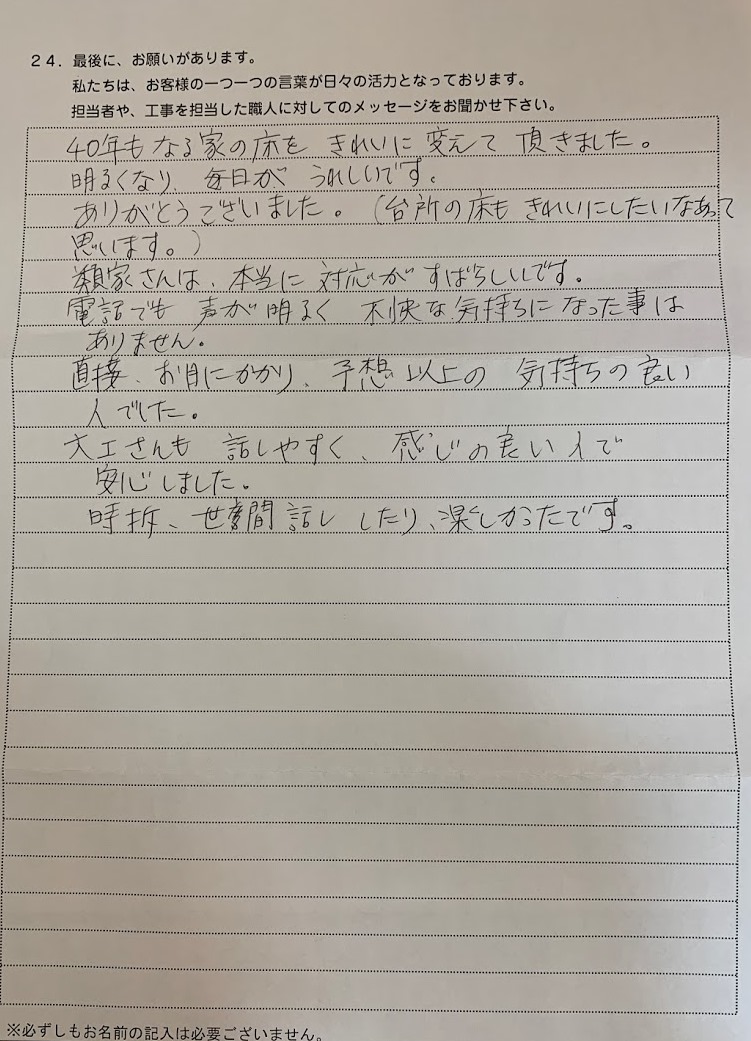 ２４．最後に、お願いがあります。
私たちは、お客様の一つ一つの言葉が日々の活力となっております。
担当者や、工事を担当した職人に対してのメッセージをお聞かせ下さい。
40年もなる家の床を きれいに 変えて 頂きました。
明るくなり、毎日が うれしいです。
ありがとうございました。(台所の床も きれいにしたいなあって
思います。)
類家さんは、本当に 対応が すばらしいです。
電話でも 声が 明るく 不快な気持ちになった事は
ありません。
直接、お目にかかり、予想以上の 気持ちの良い
人でした。
大工さんも 話しやすく、感じの良い人で
安心しました。
時折、世間話し したり、楽しかったです。
※必ずしもお名前の記入は必要ございません。